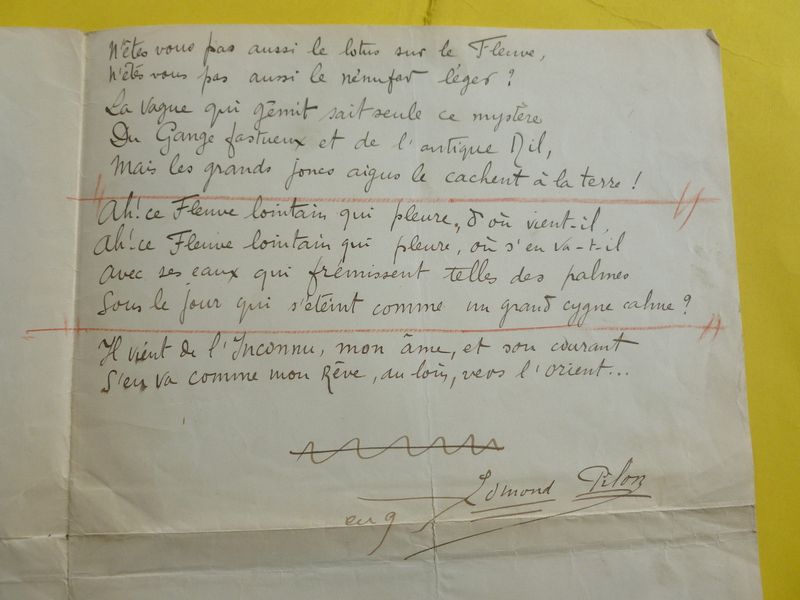 N'êtes vous pas aussi le lotus sur le Fleuve,
N'êtes vous pas aussi le nénufar léger ?
La vague qui gémit sait seule ce mystère
Du Gange fastueux et de l'antique Nil,
Mais les grands joncs aigus le cachent à la terre !
Ah! ce Fleuve lointain qui pleure, d'où vient-il,
Ah! ce Fleuve lointain qui pleure, où s'en va-t-il
Avec ses eaux qui frémissent telles des palmes
Sous le jour qui s'éteint comme un grand cygne calme ?
Il vient de l'Inconnu, mon âme, et son courant
S'en va comme mon Rêve, au loin, vers l'orient...
Edmond Pilon
en 9